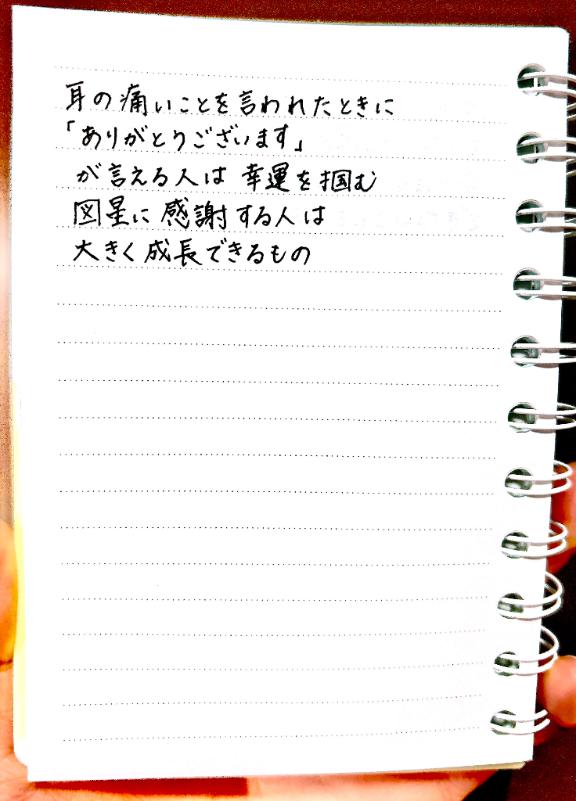 耳の痛いことを言われたときに
「ありがとうございます」
が言える人は 幸運を掴む
図星に感謝する人は
大きく成長できるもの